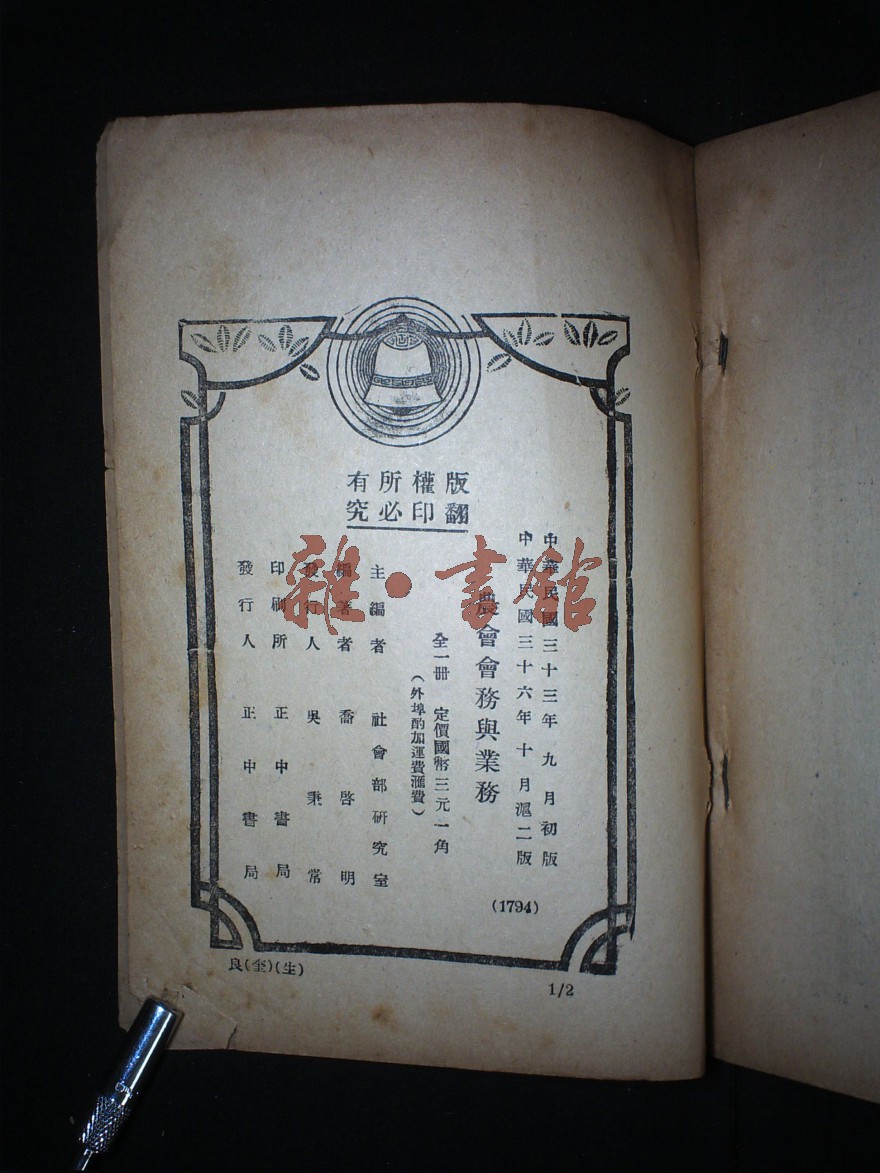 版權所有
翻印必究
中華民國三十三年九月初版
中華民國三十六年十月滬二版
農會會務與業務
全一冊 定價國幣三元一角
(外埠酌加運費滙費)
主編者 社會部研究室
編著者 喬啓明
發行人 吳秉常
印刷所 正中書局
發行人 正中書局
(1794)
良(奎)(生)
1/2
雜·書館